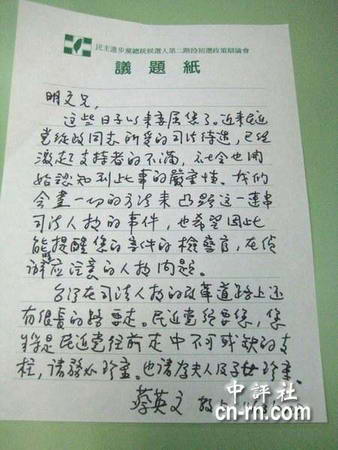 民主進步黨總統候選人第二階段初選政策辯論會
議題紙
明文兄,
這些日子以來委屈您了。近來民進
党從政同志所受的司法待遇,已經
激起支持者的不滿,社会也開
始認知到此事的嚴重情。我們
会盡一切的方法來凸顯這一連串
司法人权的事件,也希望因此
能提醒您的案件的檢察官,在偵
訴应注意的人权问題。
台灣在司法人权的改革道路上还
有很長的路要走。民進党須要您,您
將是民進党往前走中不可或缺的支
柱,請務必珍重。也請
夫人及子女珍重。
蔡英文 敬上
中評社
cn-rn.com